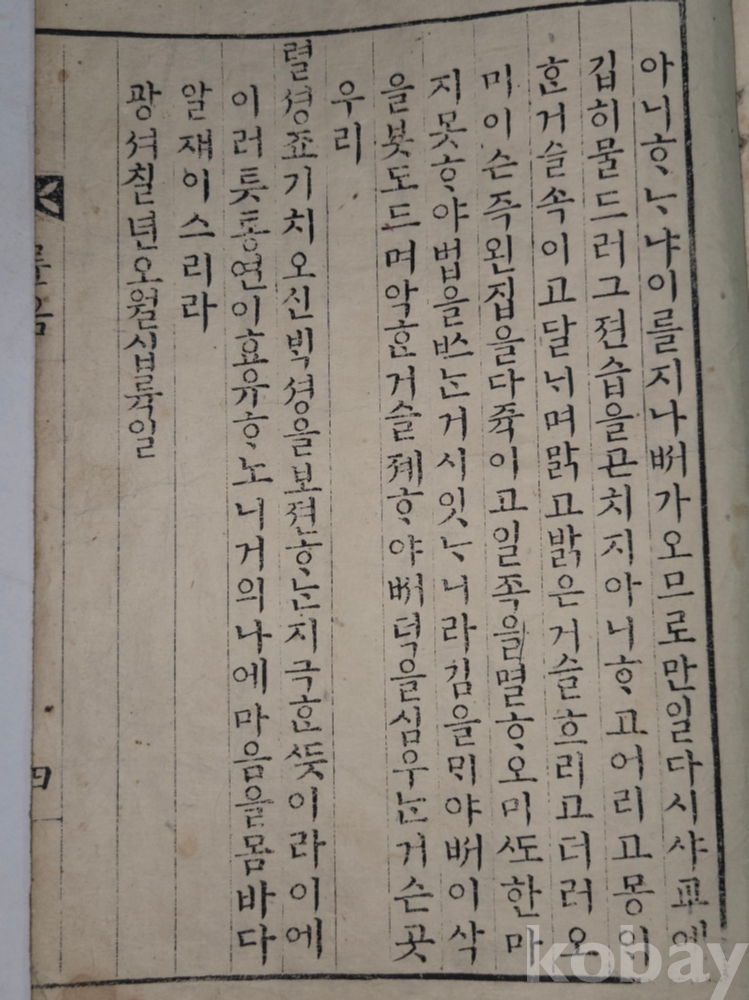 아니ᄒᆞᄂᆞ냐이를지나ᄡᅥ가오므로만일다시샤교에
깁히물드러그젼습을곤치지아니ᄒᆞ고어리고몽ᄋᆡ
ᄒᆞᆫ거슬속이고달ᄂᆡ며맑고밝은거슬흐리고더러오
미이슨즉왼집을다쥭이고일족을멸ᄒᆞ오미ᄯᅩ한마
지못ᄒᆞ야법을ᄡᅳᄂᆞᆫ거시잇ᄂᆞ니라김을ᄆᆡ야ᄡᅥ이삭
을붓도드며악ᄒᆞᆫ거슬졔ᄒᆞ야ᄡᅥ덕을심우ᄂᆞᆫ거슨곳
우리
렬셩죠기치오신ᄇᆡᆨ셩을보젼ᄒᆞᄂᆞᆫ지극ᄒᆞᆫᄯᅳᆺ이라이에
이러틋통연이효유ᄒᆞ노니거의나에마음을몸바다
알쟤이스리라
광셔칠년오월십륙일
륜음
四
kobay